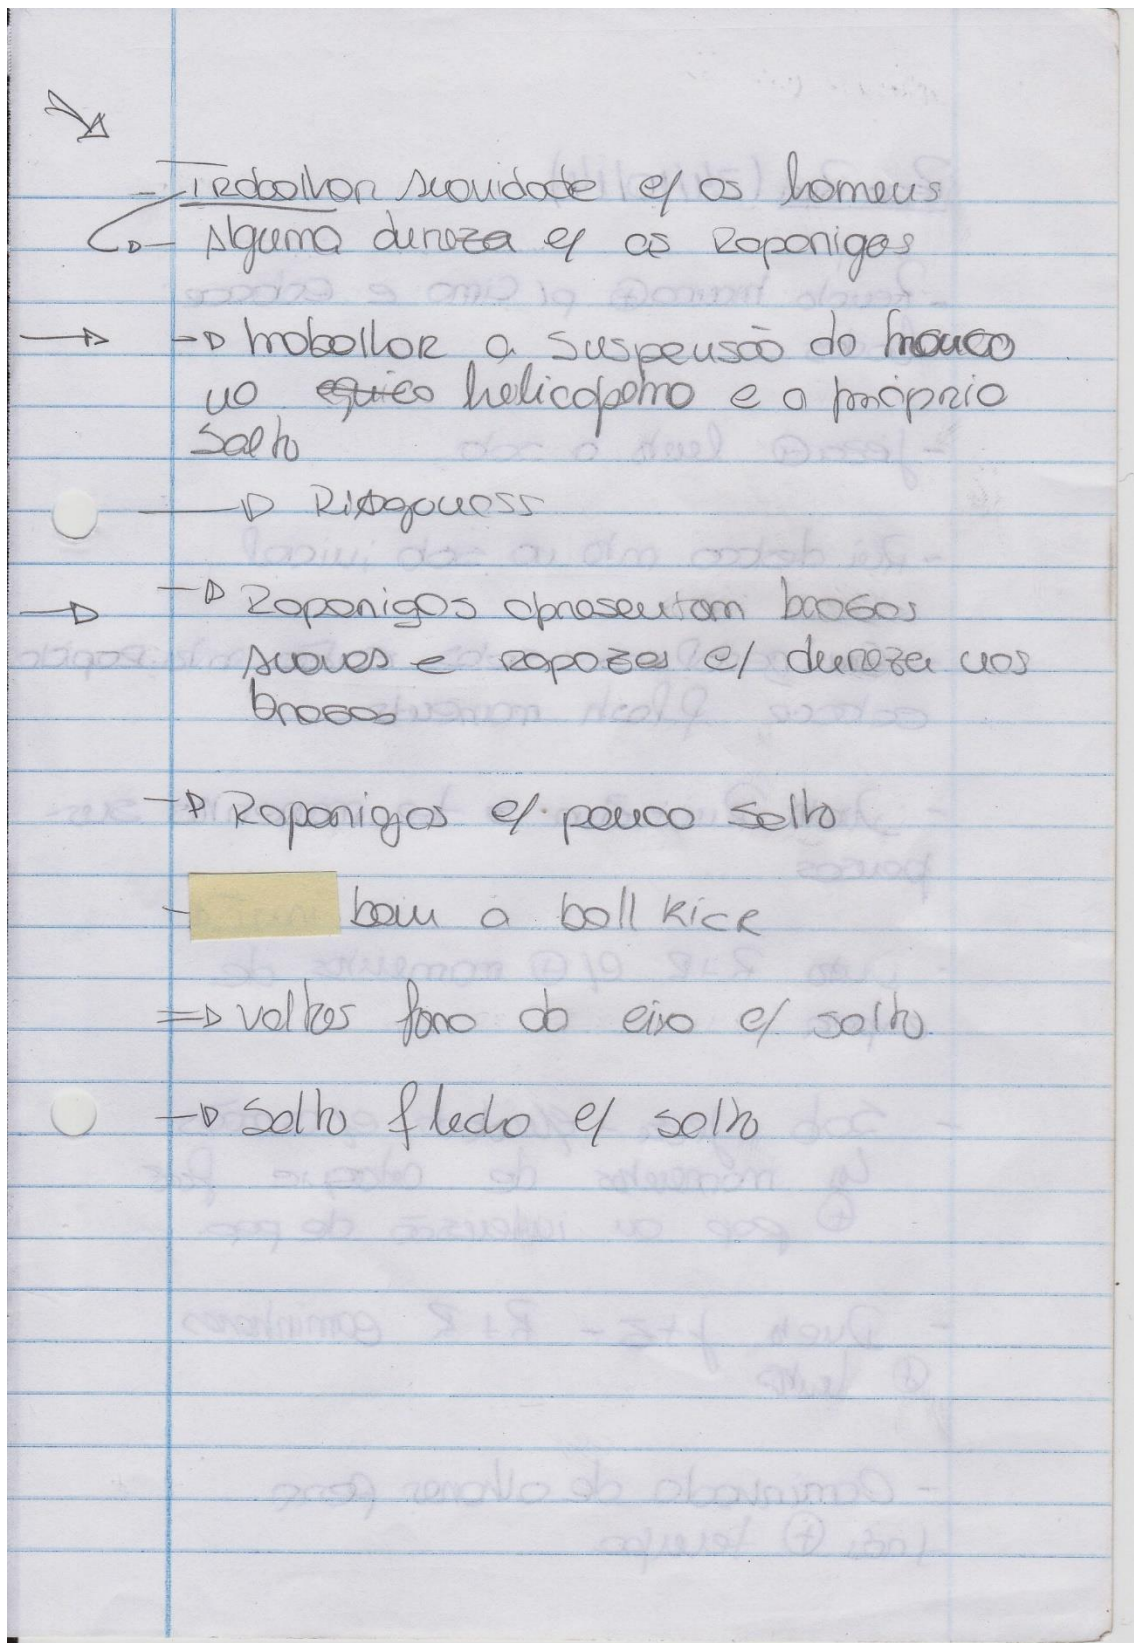 - Trabalhar suavidade c/ os homens
- Alguma dureza c/ as Raparigas
-> trabalhar a suspensão do tronco
no helicóptero e o próprio
salto
-> Raparigas apresentam braços
suaves e rapazes c/ dureza nos
braços
-> Raparigas c/ pouco salto
- bem a ball kick
=> voltas fora do eixo c/ salto
-> Salto c/ salto